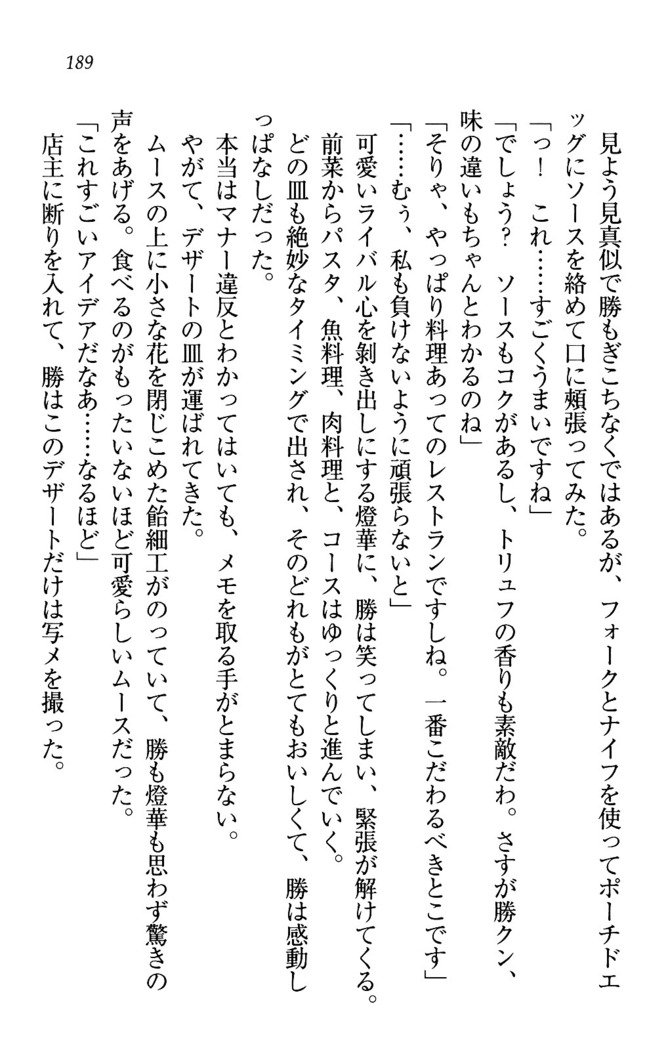 189
見よう見真似で勝もぎこちなくではあるが、フォークとナイフを使ってポーチドエ
ッグにソースを絡めて口に頰張ってみた。
「っ！　これ……すごくうまいですね」
「でしょう？　ソースもコクがあるし、トリュフの香りも素敵だわ。さすが勝クン、
味の違いもちゃんとわかるのね」
「そりゃ、やっぱり料理あってのレストランですしね。一番こだわるべきとこです」
「……むぅ、私も負けないように頑張らないと」
可愛いライバル心を剝き出しにする燈華に、勝は笑ってしまい、緊張が解けてくる。
前菜からパスタ、魚料理、肉料理と、コースはゆっくりと進んでいく。
どの皿も絶妙なタイミングで出され、そのどれもがとてもおいしくて、勝は感動し
っぱなしだった。
本当はマナー違反とわかってはいても、メモを取る手がとまらない。
やがて、デザートの皿が運ばれてきた。
ムースの上に小さな花を閉じこめた飴細工がのっていて、勝も燈華も思わず驚きの
声をあげる。食べるのがもったいないほど可愛らしいムースだった。
「これすごいアイデアだなあ……なるほど」
店主に断りを入れて、勝はこのデザートだけは写メを撮った。